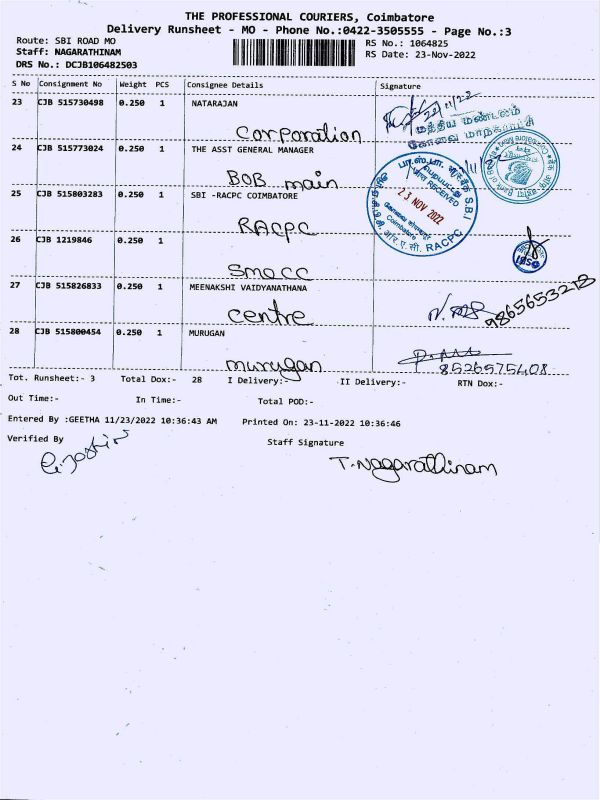 THE PROFESSIONAL COURIERS, Coimbatore
Delivery Runsheet - MO - Phone No.:0422-3505555 - Page No.:3
Route: SBI ROAD MO
RS No.: 1064825
Staff: NAGARATHINAM
RS Date: 23-Nov-2022
DRS No.: DCJB106482503
S No Consignment No Weight PCS Consignee Details Signature
23 CJB 515730498 0.250 1 NATARAJAN
Corporation
மத்திய மண்டலம்
கோவை மாநகராட்சி
24 CJB 515773024 0.250 1 THE ASST GENERAL MANAGER
BOB main
25 CJB 515803283 0.250 1 SBI -RACPC COIMBATORE
RACPC
RECEIVED
23 NOV 2022
Coimbatore
S.B.I.
RACPC
26 CJB 1219846 0.250 1
Smacc
27 CJB 515826833 0.250 1 MEENAKSHI VAIDYANATHANA
centre
9865653213
28 CJB 515800454 0.250 1 MURUGAN
murugan
8526575408
Tot. Runsheet:- 3 Total Dox:- 28 I Delivery:- II Delivery:- RTN Dox:-
Out Time:- In Time:- Total POD:-
Entered By :GEETHA 11/23/2022 10:36:43 AM Printed On: 23-11-2022 10:36:46
Verified By Staff Signature
T. Nagarathinam